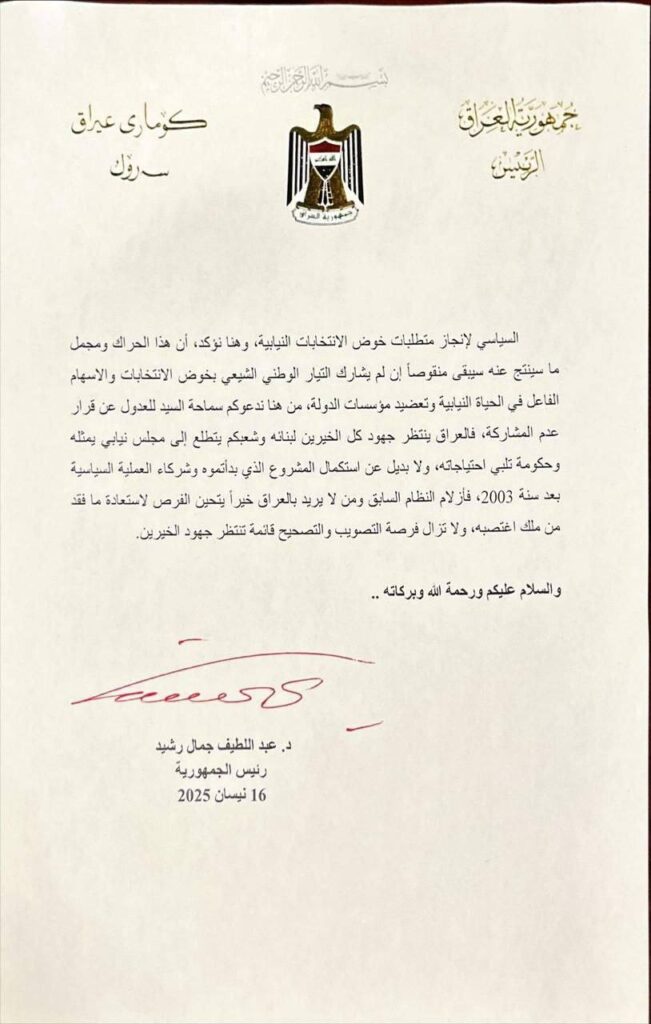 بسم الله الرحمن الرحيم
جمهورية العراق
الرئيس
كۆماری عیراق
سەرۆك
جمهورية العراق
السياسي لإنجاز متطلبات خوض الانتخابات النيابية، وهنا نؤكد، أن هذا الحراك ومجمل
ما سينتج عنه سيبقى منقوصاً إن لم يشارك التيار الوطني الشيعي بخوض الانتخابات والاسهام
الفاعل في الحياة النيابية وتعضيد مؤسسات الدولة، من هنا ندعوكم سماحة السيد للعدول عن قرار
عدم المشاركة، فالعراق ينتظر جهود كل الخيرين لبنائه وشعبكم يتطلع إلى مجلس نيابي يمثله
وحكومة تلبي احتياجاته، ولا بديل عن استكمال المشروع الذي بدأتموه وشركاء العملية السياسية
بعد سنة 2003، فأزلام النظام السابق ومن لا يريد بالعراق خيراً يتحين الفرص لاستعادة ما فقد
من ملك اغتصبه، ولا تزال فرصة التصويب والتصحيح قائمة تنتظر جهود الخيرين.
والسلام عليكم ورحمة الله وبركاته ..
د. عبد اللطيف جمال رشيد
رئيس الجمهورية
16 نيسان 2025